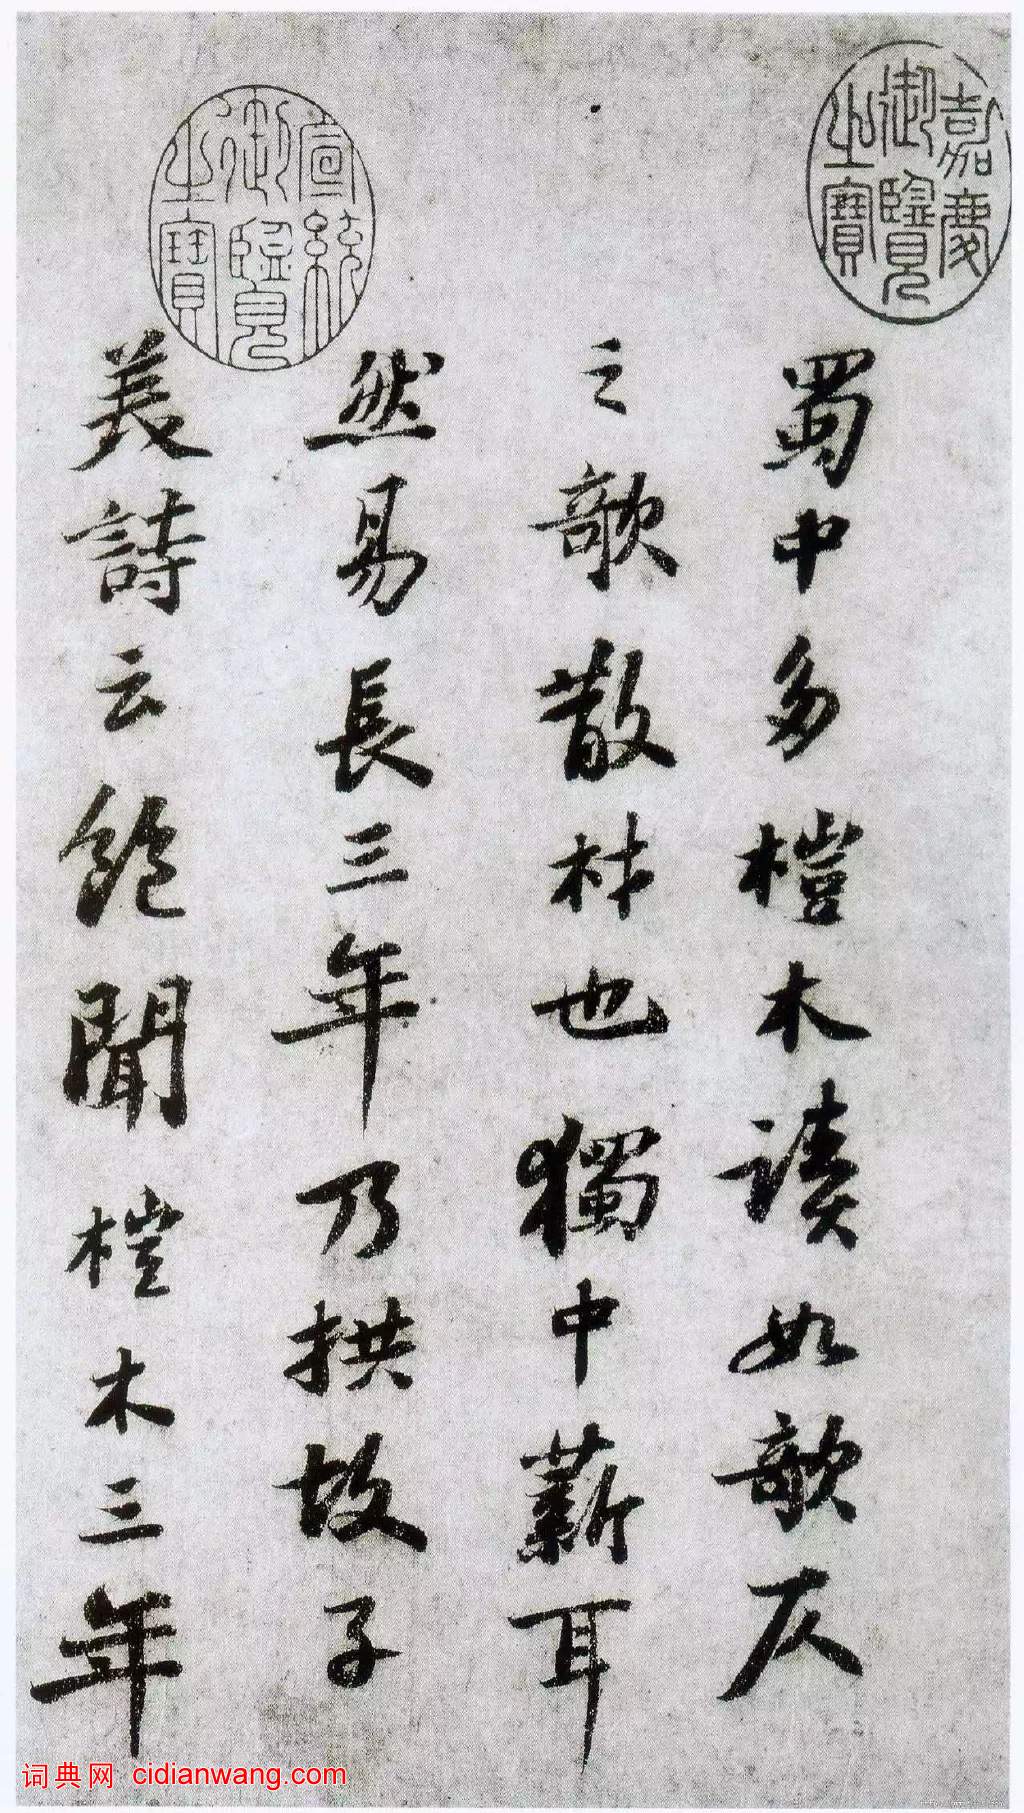 嘉慶御覽之寶
蜀中多榿木讀如欹仄
之欹散材也獨中薪耳
宣統御覽之寶
然易長三年乃拱故子
美詩云飽聞榿木三年
词典网 cidianwang.com